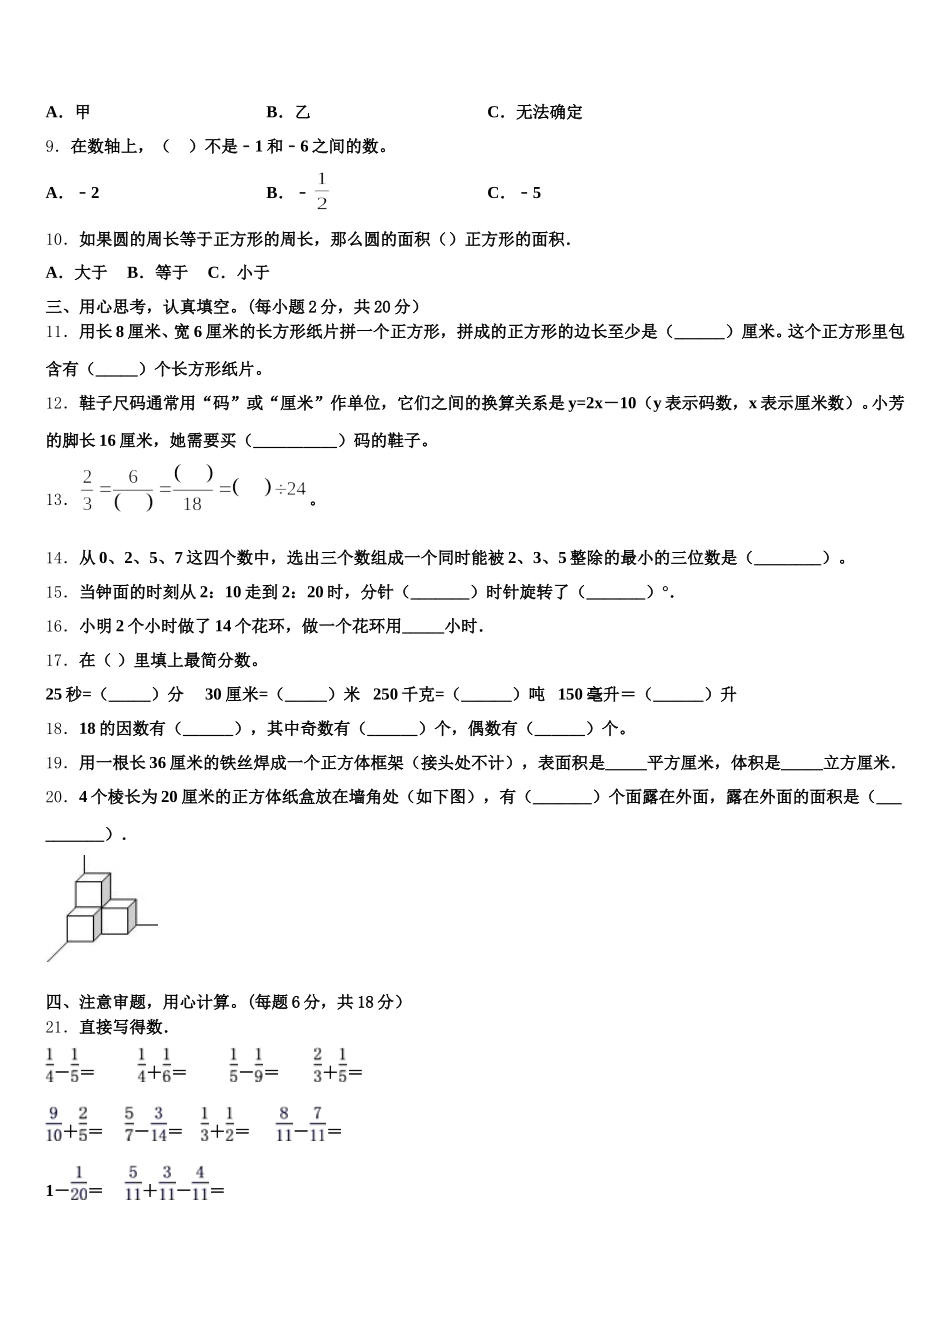 A．甲 B．乙 C．无法确定
9．在数轴上，（ ）不是﹣1 和﹣6 之间的数。
A．﹣2 B．﹣1/2 C．﹣5
10．如果圆的周长等于正方形的周长，那么圆的面积（）正方形的面积．
A．大于 B．等于 C．小于
三、用心思考，认真填空。(每小题 2 分，共 20 分）
11．用长 8 厘米、宽 6 厘米的长方形纸片拼一个正方形，拼成的正方形的边长至少是（______）厘米。这个正方形里包
含有（_____）个长方形纸片。
12．鞋子尺码通常用“码”或“厘米”作单位，它们之间的换算关系是 y=2x－10（y 表示码数，x 表示厘米数）。小芳
的脚长 16 厘米，她需要买（__________）码的鞋子。
13．2/3=6/( )=( )/18=( )÷24。
14．从 0、2、5、7 这四个数中，选出三个数组成一个同时能被 2、3、5 整除的最小的三位数是（________）。
15．当钟面的时刻从 2：10 走到 2：20 时，分针（_______）时针旋转了（_______）°．
16．小明 2 个小时做了 14 个花环，做一个花环用_____小时．
17．在（ ）里填上最简分数。
25 秒=（_____）分 30 厘米=（_____）米 250 千克=（______）吨 150 毫升＝（______）升
18．18 的因数有（______），其中奇数有（______）个，偶数有（______）个。
19．用一根长 36 厘米的铁丝焊成一个正方体框架（接头处不计），表面积是_____平方厘米，体积是_____立方厘米．
20．4 个棱长为 20 厘米的正方体纸盒放在墙角处（如下图），有（_______）个面露在外面，露在外面的面积是（___
_______）．
四、注意审题，用心计算。(每题 6 分，共 18 分）
21．直接写得数．
1/4－1/5＝ 1/4＋1/6＝ 1/5－1/9＝ 2/3＋1/5＝
9/10＋2/5＝ 5/7－3/14＝ 1/3＋1/2＝ 8/11－7/11＝
1－1/20＝ 5/11＋3/11－4/11＝